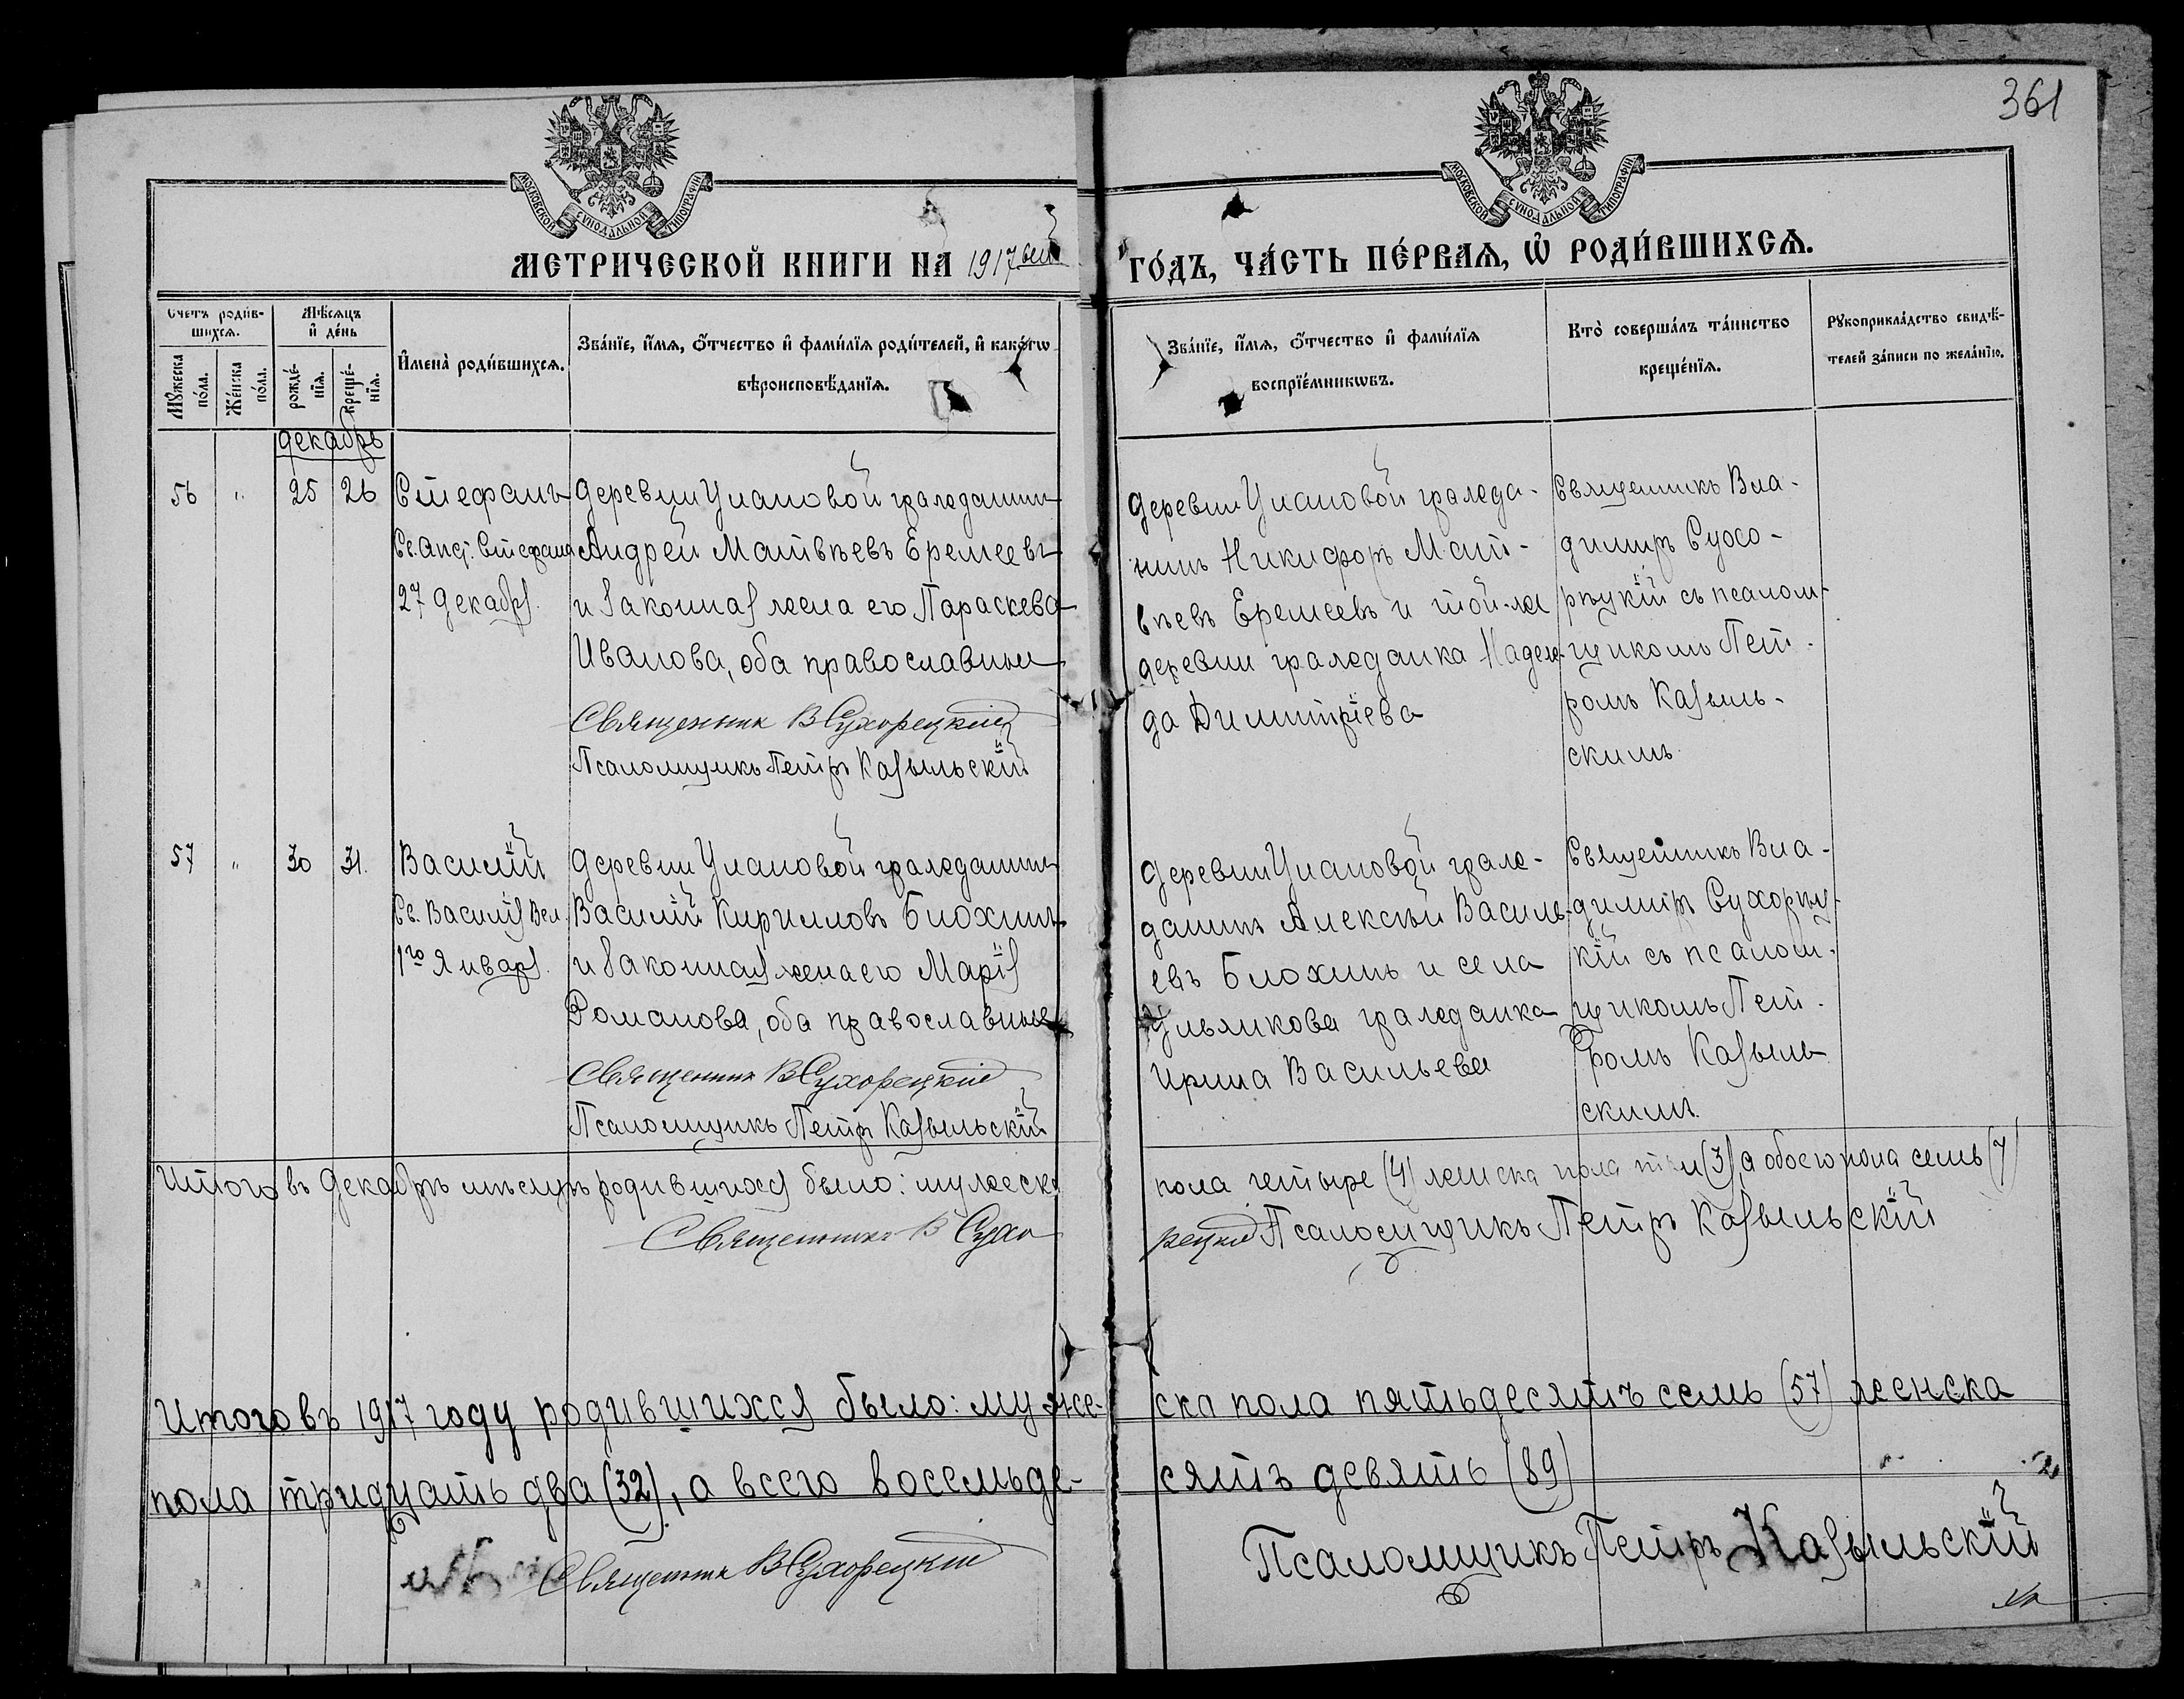 361
МОСКОВСКОЙ СѴНОДАЛЬНОЙ ТИПОГРАФІИ
МОСКОВСКОЙ СѴНОДАЛЬНОЙ ТИПОГРАФІИ
МЕТРИЧЕСКОЙ КНИГИ НА 1917
ГО́ДЪ, ЧА́СТЬ ПЕ́РВАѦ, Ѡ҆ РОДИ́ВШИХСѦ.
Счетъ роди́в-
шихсѧ.
Мꙋжеска
по́ла.
Же́нска
по́ла.
Мѣ́сѧцъ
и҆ де́нь
рожде́-
нїѧ.
креще́-
нїѧ.
И҆мена̀ роди́вшихсѧ.
Зва́нїе, и҆́мѧ, ѻ҆́тчество и҆ фамилїѧ роди́телей, и҆ како́гѡ
вѣроисповѣ́данїѧ.
Зва́нїе, и҆́мѧ, ѻ҆́тчество и҆ фами́лїѧ
воспрїе́мникѡвъ.
Кто̀ соверша́лъ та́инство
креще́нїѧ.
Рꙋкоприкла́дство свидѣ́-
телей за́писи по жела́нїю.
декабрь
56
"
25
26
Стефанъ
Св. Апст. Стефана
27 декабря.
Деревни Улановой гражданинъ
Андрей Матвѣевъ Еремеевъ
и законная жена его Параскева
Иванова, оба православные
Священник В Сухорецкій
Псаломщикъ Петръ Казыльскій
Деревни Улановой гражда-
нинъ Никифоръ Мат-
вѣевъ Еремеевъ и той-же
деревни гражданка Надеж-
да Димитріева
Священникъ Вла-
димиръ Сухо-
рѣцкій съ псалом-
щикомъ Пет-
ромъ Казыль-
скимъ
57
"
30
31.
Василій
Св. Василія Вел.
1го Января.
Деревни Улановой гражданинъ
Василій Кирилловъ Блохинъ
и законная жена его Марія
Романова, оба православные
Священник В Сухорецкій
Псаломщикъ Петръ Казыльскій
Деревни Улановой граж-
данинъ Алексѣй Василь-
евъ Блохинъ и села
Ульянкова гражданка
Ирина Васильева
Священникъ Вла-
димиръ Сухорѣц-
кій съ псалом-
щикомъ Пет-
ромъ Казыль
скимъ.
Итого въ Декабрѣ мѣсяцѣ родившихся было: мужеска
пола четыре (4) женска пола три (3), а обоего пола семь (7)
Священник В Сухо
рецкій Псаломщикъ Петръ Казыльскій
Итого въ 1917 году родившихся было: муже-
ска пола пятьдесятъ семь (57) женска
пола тридцать два (32), а всего восемьде-
сятъ девять (89)
Священник В Сухорецкій
Псаломщикъ Петръ Казыльскій